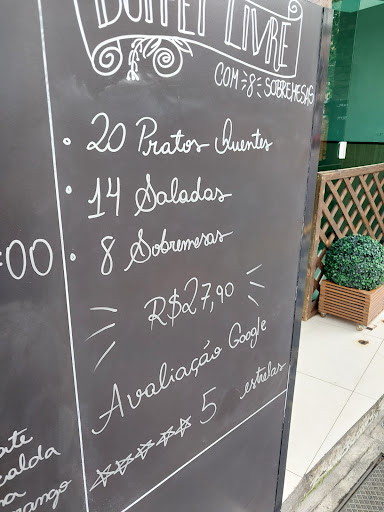 BUFFET LIVRE
COM 8 SOBREMESAS
• 20 Pratos Quentes
• 14 Saladas
• 8 Sobremesas
R$27,90
Avaliação Google
5 estrelas
:00
calda